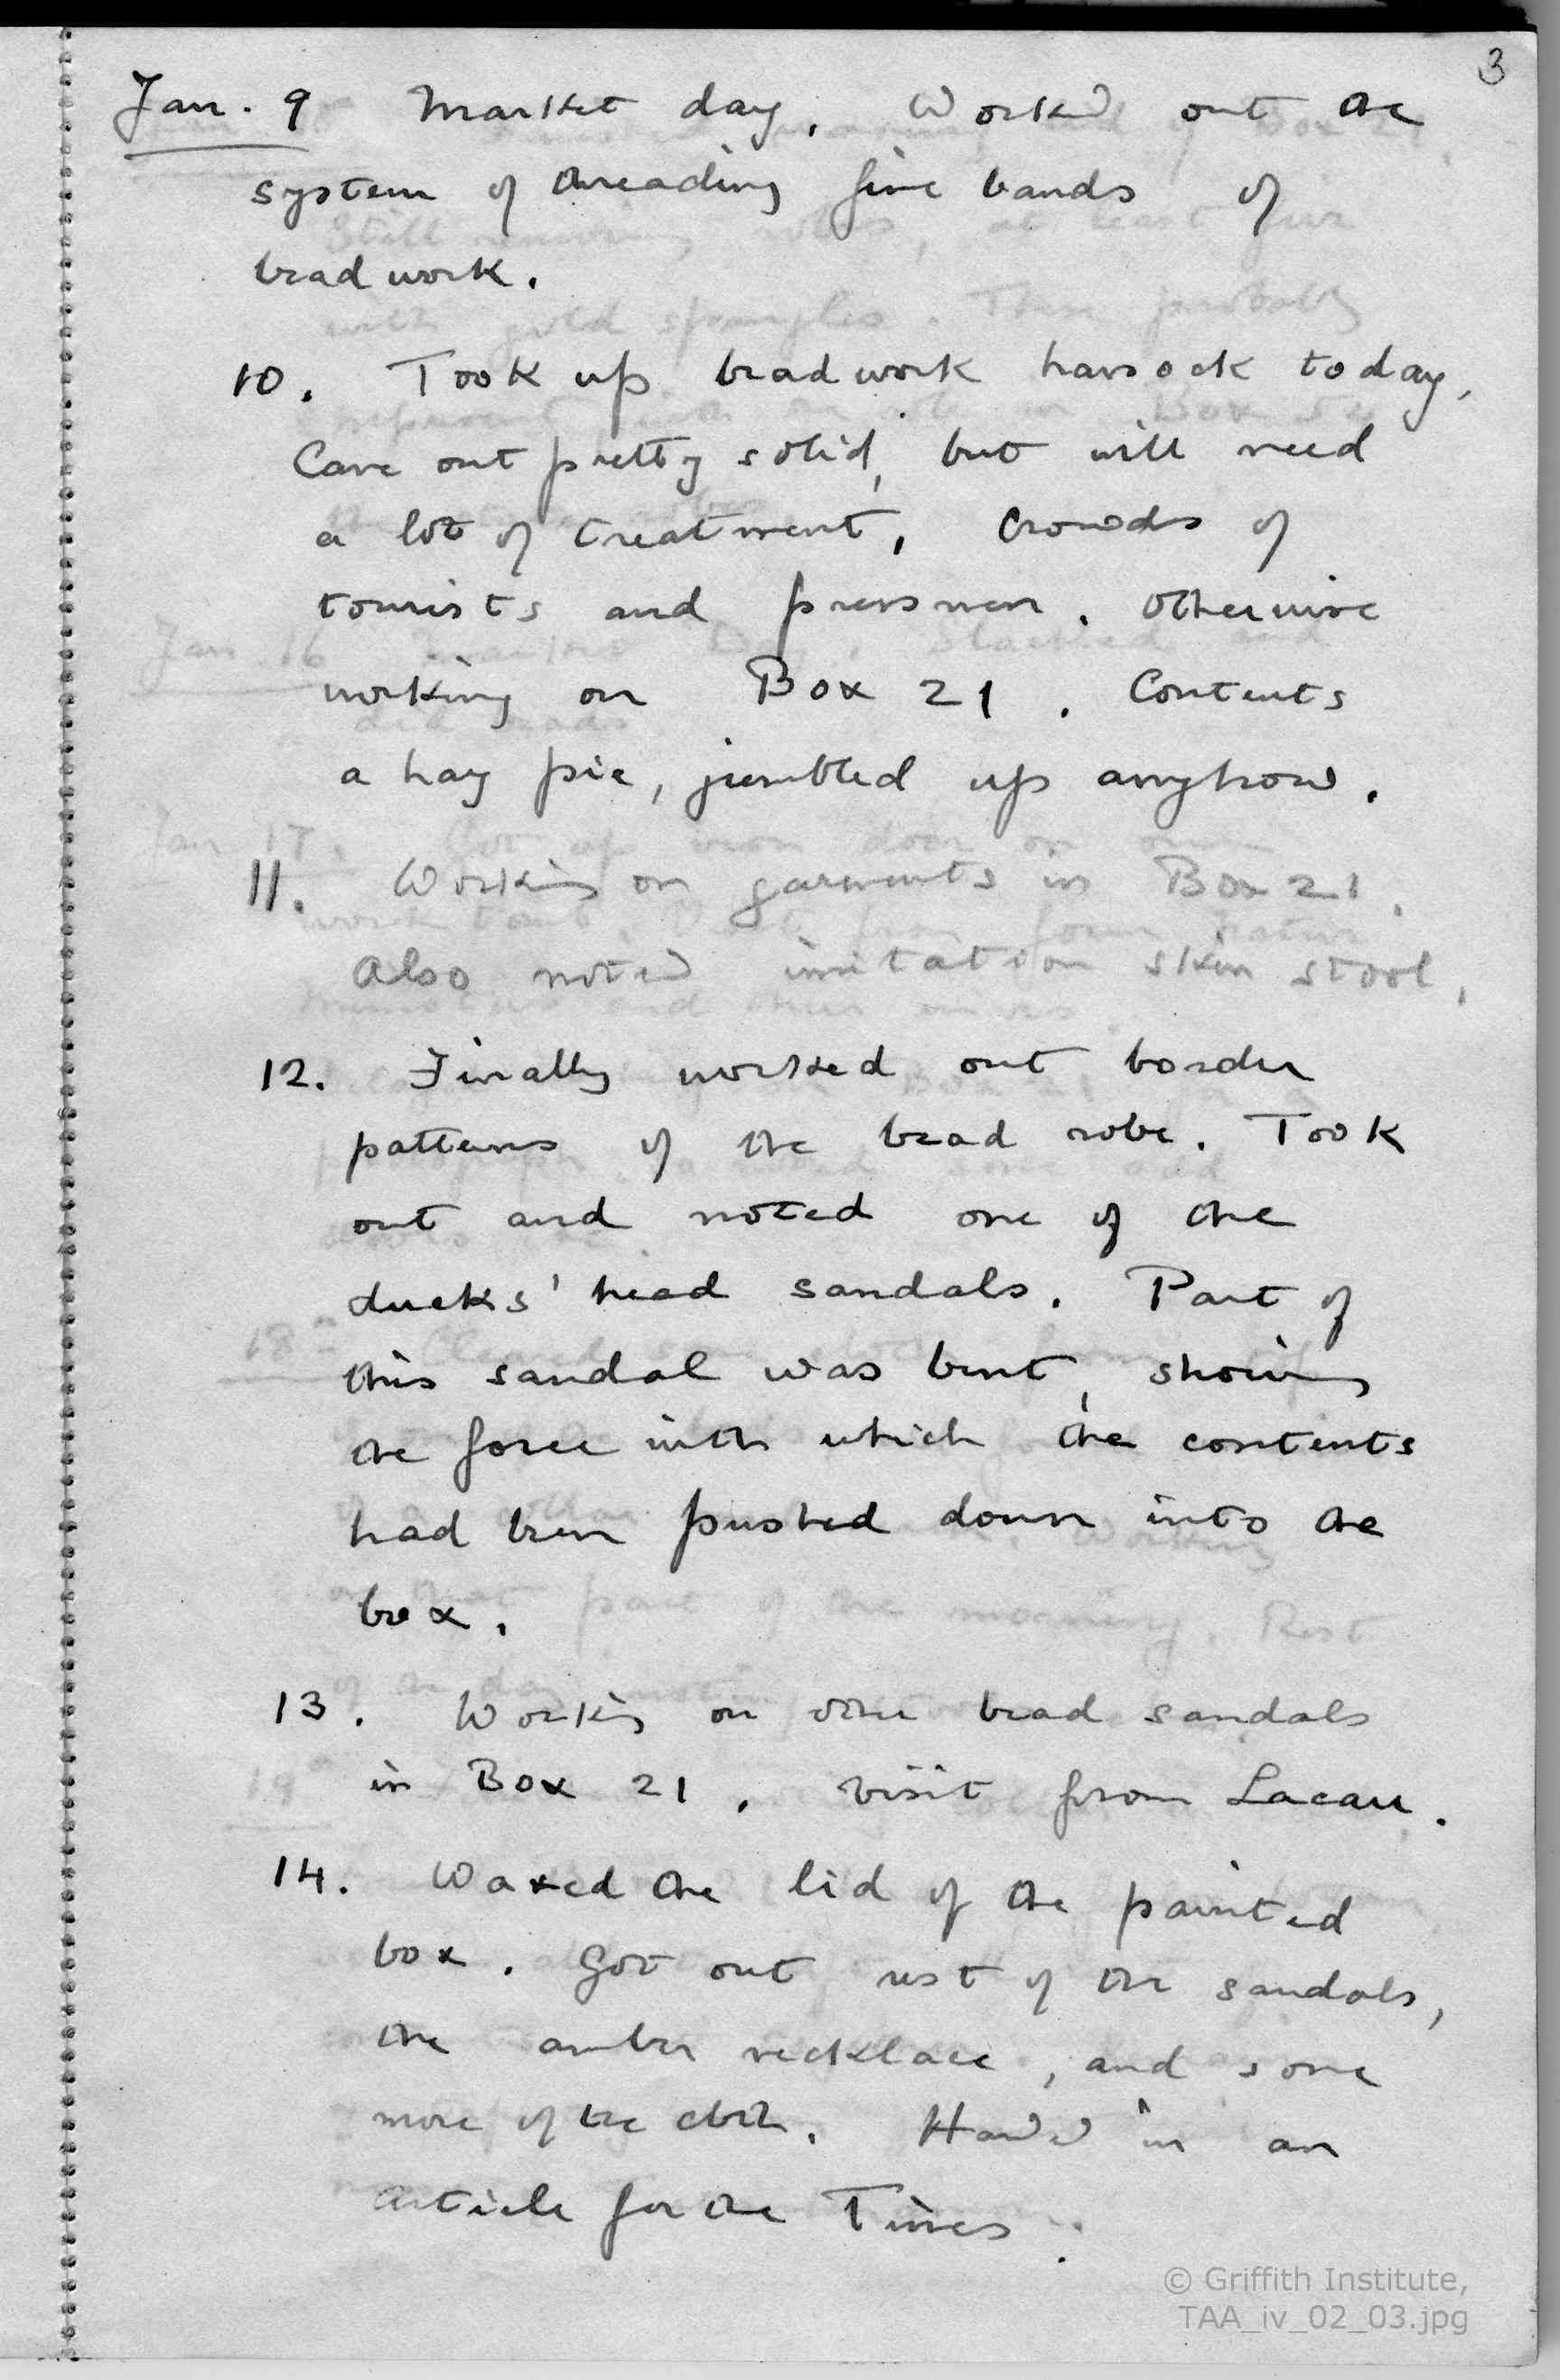 3
Jan. 9 Market day. Worked out the
system of threading five bands of
beadwork.
10. Took up beadwork hassock today.
Came out pretty solid, but will need
a lot of treatment. Crowds of
tourists and pressmen. Otherwise
working on Box 21. Contents
a hay pie, jumbled up anyhow.
11. Working on garments in Box 21.
Also noted imitation skin stool.
12. Finally worked out border
patterns of the bead robe. Took
out and noted one of the
ducks' head sandals. Part of
this sandal was bent, showing
the force with which the contents
had been pushed down into the
box.
13. Working on other bead sandals
in Box 21. Visit from Lacau.
14. Waxed the lid of the painted
box. Got out rest of the sandals,
the amber necklace, and some
more of the cloth. Handed in an
article for the Times.
© Griffith Institute,
TAA_iv_02_03.jpg